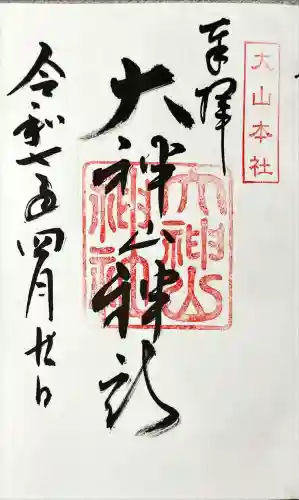 大山本社
奉拝
大神山神社
大神山
神社
令和七年四月廿日